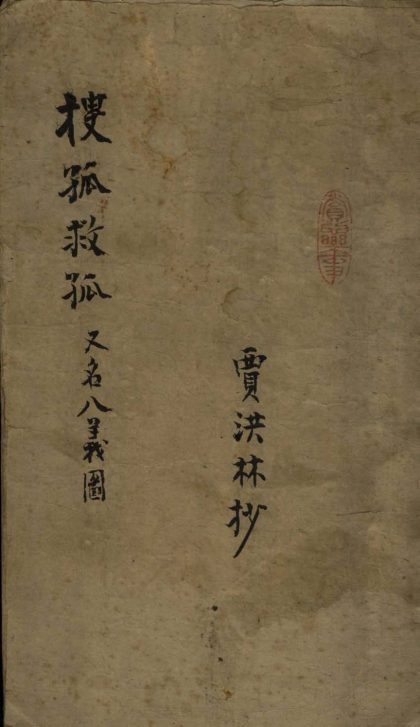 賈洪林抄
搜孤救孤又名八義圖